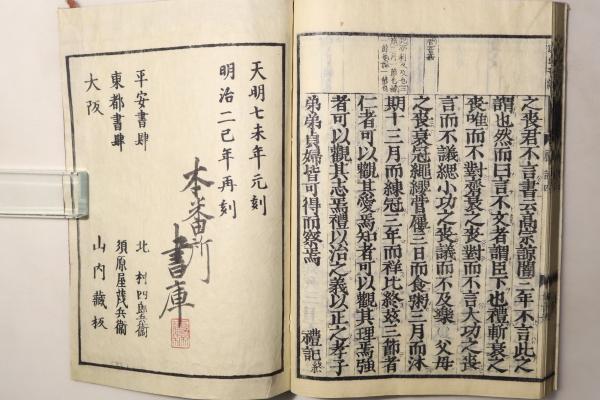 之喪君不言書云高宗諒闇三年不言此之
謂也然而曰言不文者謂臣下也禮斬衰之
喪唯而不對齊衰之喪對而不言大功之喪
言而不議緦小功之喪議而不及樂 父母
之喪衰冠繩纓菅屨三日而食粥三月而沐
期十三月而練冠三年而祥比終茲三節者
仁者可以觀其愛焉知者可以觀其理焉強
者可以觀其志焉禮以治之義以正之孝子
弟弟貞婦皆可得而察焉 禮記終
天明七未年元刻
明治二己年再刻
本番所書庫
平安書肆 北村四郎兵衞
東都書肆 須原屋茂兵衞
大阪 山内藏板